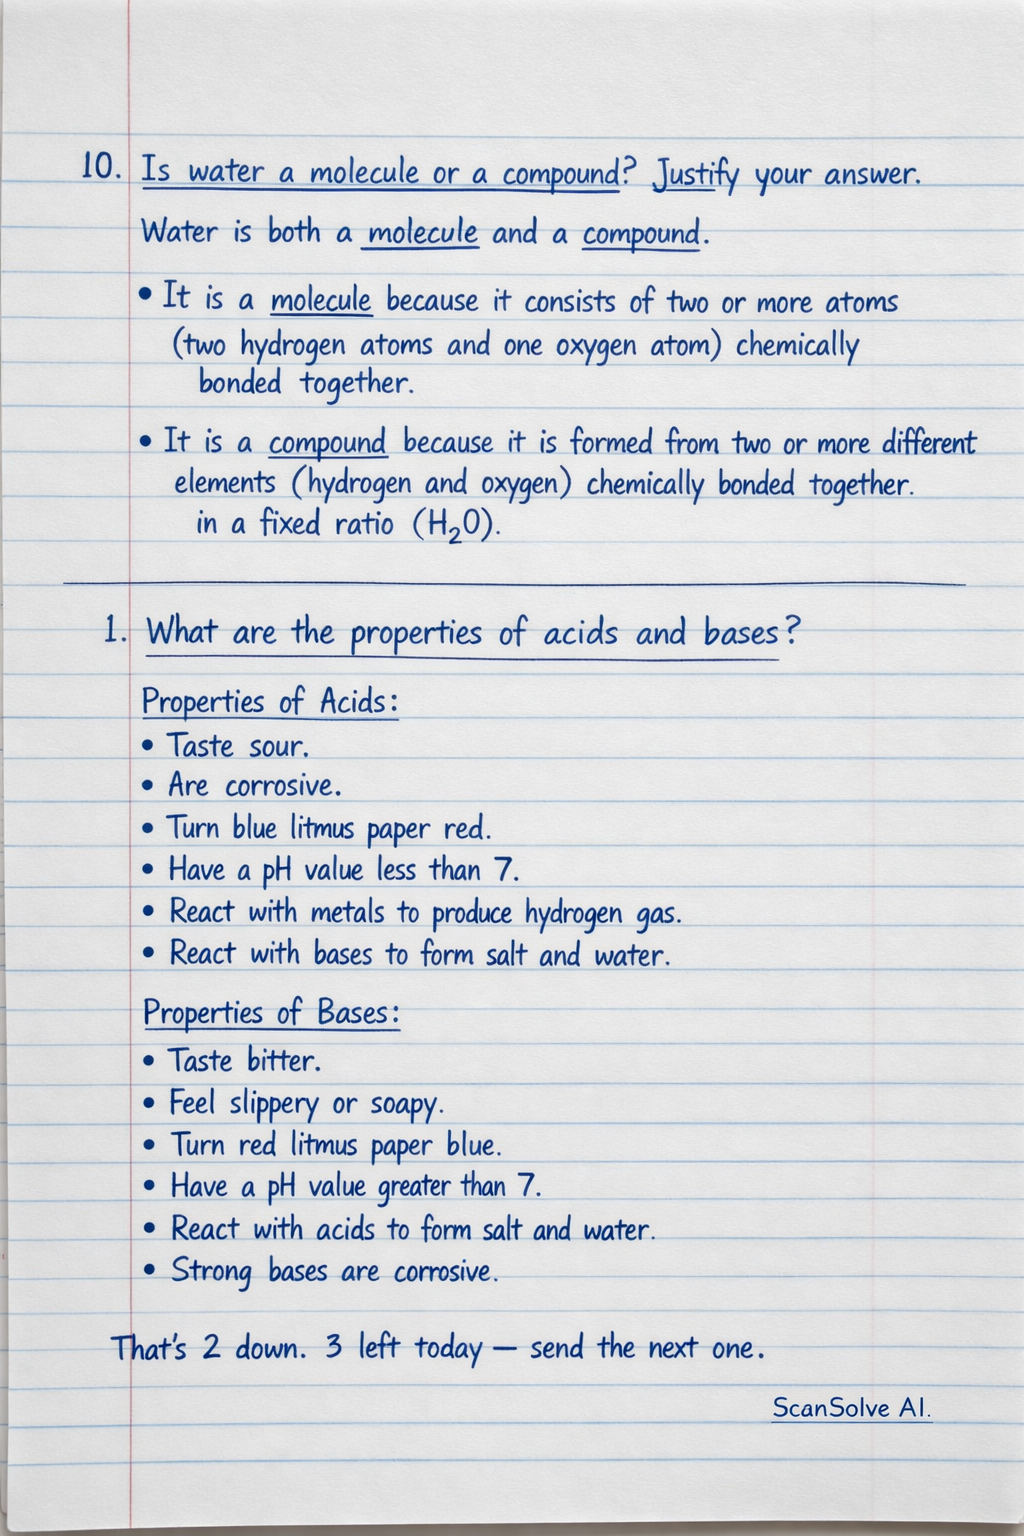 10. Is water a molecule or a compound? Justify your answer.
Water is both a molecule and a compound.
• It is a molecule because it consists of two or more atoms
(two hydrogen atoms and one oxygen atom) chemically
bonded together.
• It is a compound because it is formed from two or more different
elements (hydrogen and oxygen) chemically bonded together.
in a fixed ratio (H₂O).
1. What are the properties of acids and bases?
Properties of Acids:
• Taste sour.
• Are corrosive.
• Turn blue litmus paper red.
• Have a pH value less than 7.
• React with metals to produce hydrogen gas.
• React with bases to form salt and water.
Properties of Bases:
• Taste bitter.
• Feel slippery or soapy.
• Turn red litmus paper blue.
• Have a pH value greater than 7.
• React with acids to form salt and water.
• Strong bases are corrosive.
That's 2 down. 3 left today — send the next one.
ScanSolve AI.